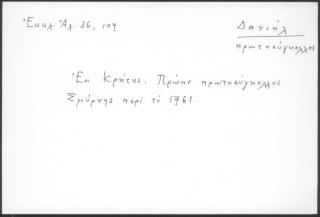 Ἐκκλ. Ἀλ. 36, 109
Δανιήλ
πρωτοσύγκελλος
Ἐκ Κρήτης. Πρώην πρωτοσύγκελλος
Σμύρνης περί τό 1761.